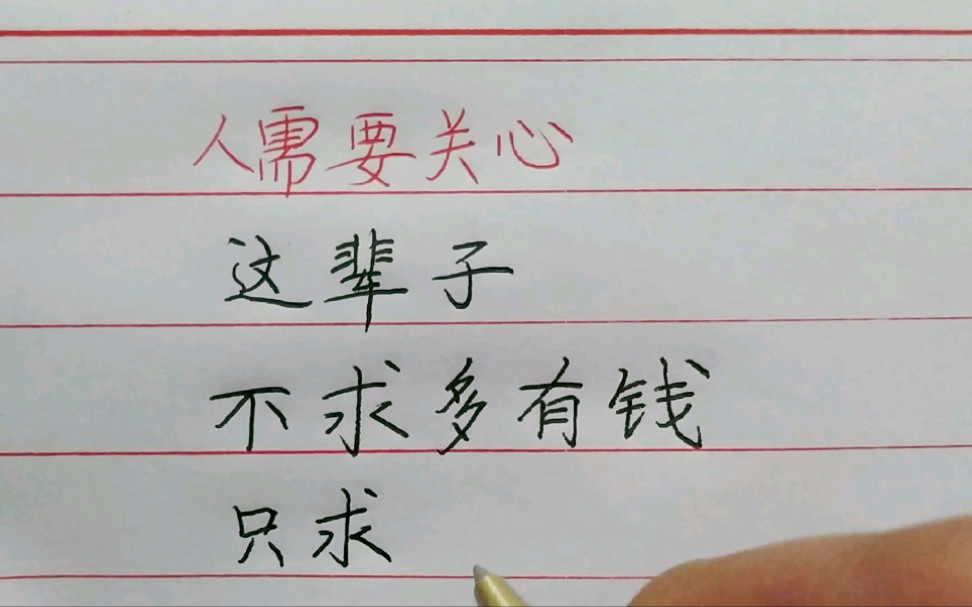 人需要关心
这辈子
不求多有钱
只求